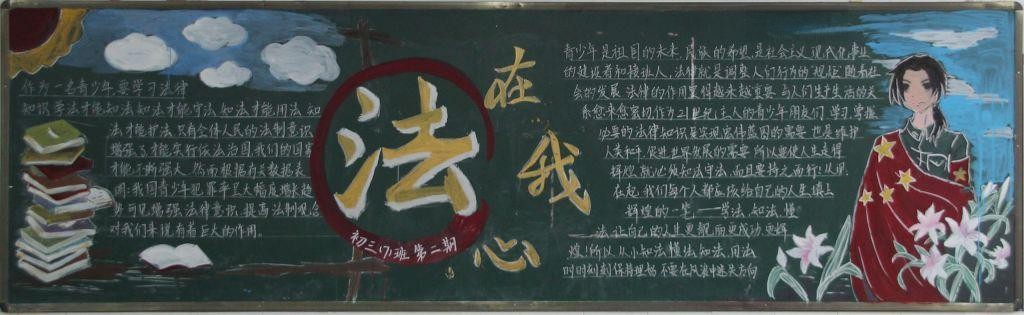 作为一名青少年要学习法律
知识学法才能知法知法才能守法,知法才能用法知
法才能护法.只有全体人民的法制意识
增强了才能实行依法治国,我们的国家
才能不断强大.然而根据有关数据表
明:我国青少年犯罪率呈大幅度增长趋
势可见增强法律意识,提高法制观念
对我们来说有着巨大的作用。
法
初三(7)班 第二期
在我心
青少年是祖国的未来,民族的希望,是社会主义现代化事业
的建设者和接班人,法律就是调整人们行为的"规范"随着社
会的发展,法律的作用显得越来越重要,与人们生产生活的关
系愈来愈密切.作为21世纪主人的青少年朋友们,学习掌握
必要的法律知识是实现宏伟蓝图的需要,也是维护
人类和平,促进世界发展的需要.所以要使人生走得
辉煌,就必须知法守法,而且要持之而行:从现
在起,我们每个人都应该给自己的人生填上
辉煌的一笔——学法,知法,懂
法,让自己的人生更靓,而更成功更辉
煌!所以从小知法懂法,知法,用法
时时刻刻保持理智 不要在风浪中迷失方向